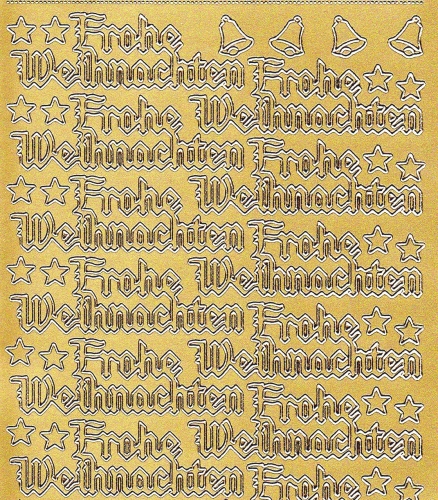 Frohe
Weihnachten
Frohe
Weihnachten
Frohe
Weihnachten
Frohe
Weihnachten
Frohe
Weihnachten
Frohe
Weihnachten
Frohe
Weihnachten
Frohe
Weihnachten
Frohe
Weihnachten
Frohe
Weihnachten
Frohe
Weihnachten
Frohe